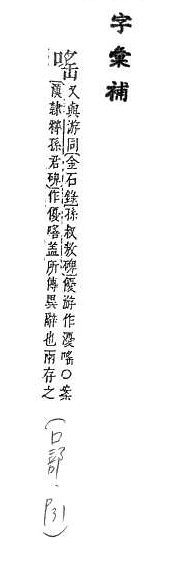 字彙補
㗛又與游同金石錄孫叔敖碑優游作優㗛○案
隸釋孫君碑作優㗛蓋所傳異辭也兩存之
(口部、P31)